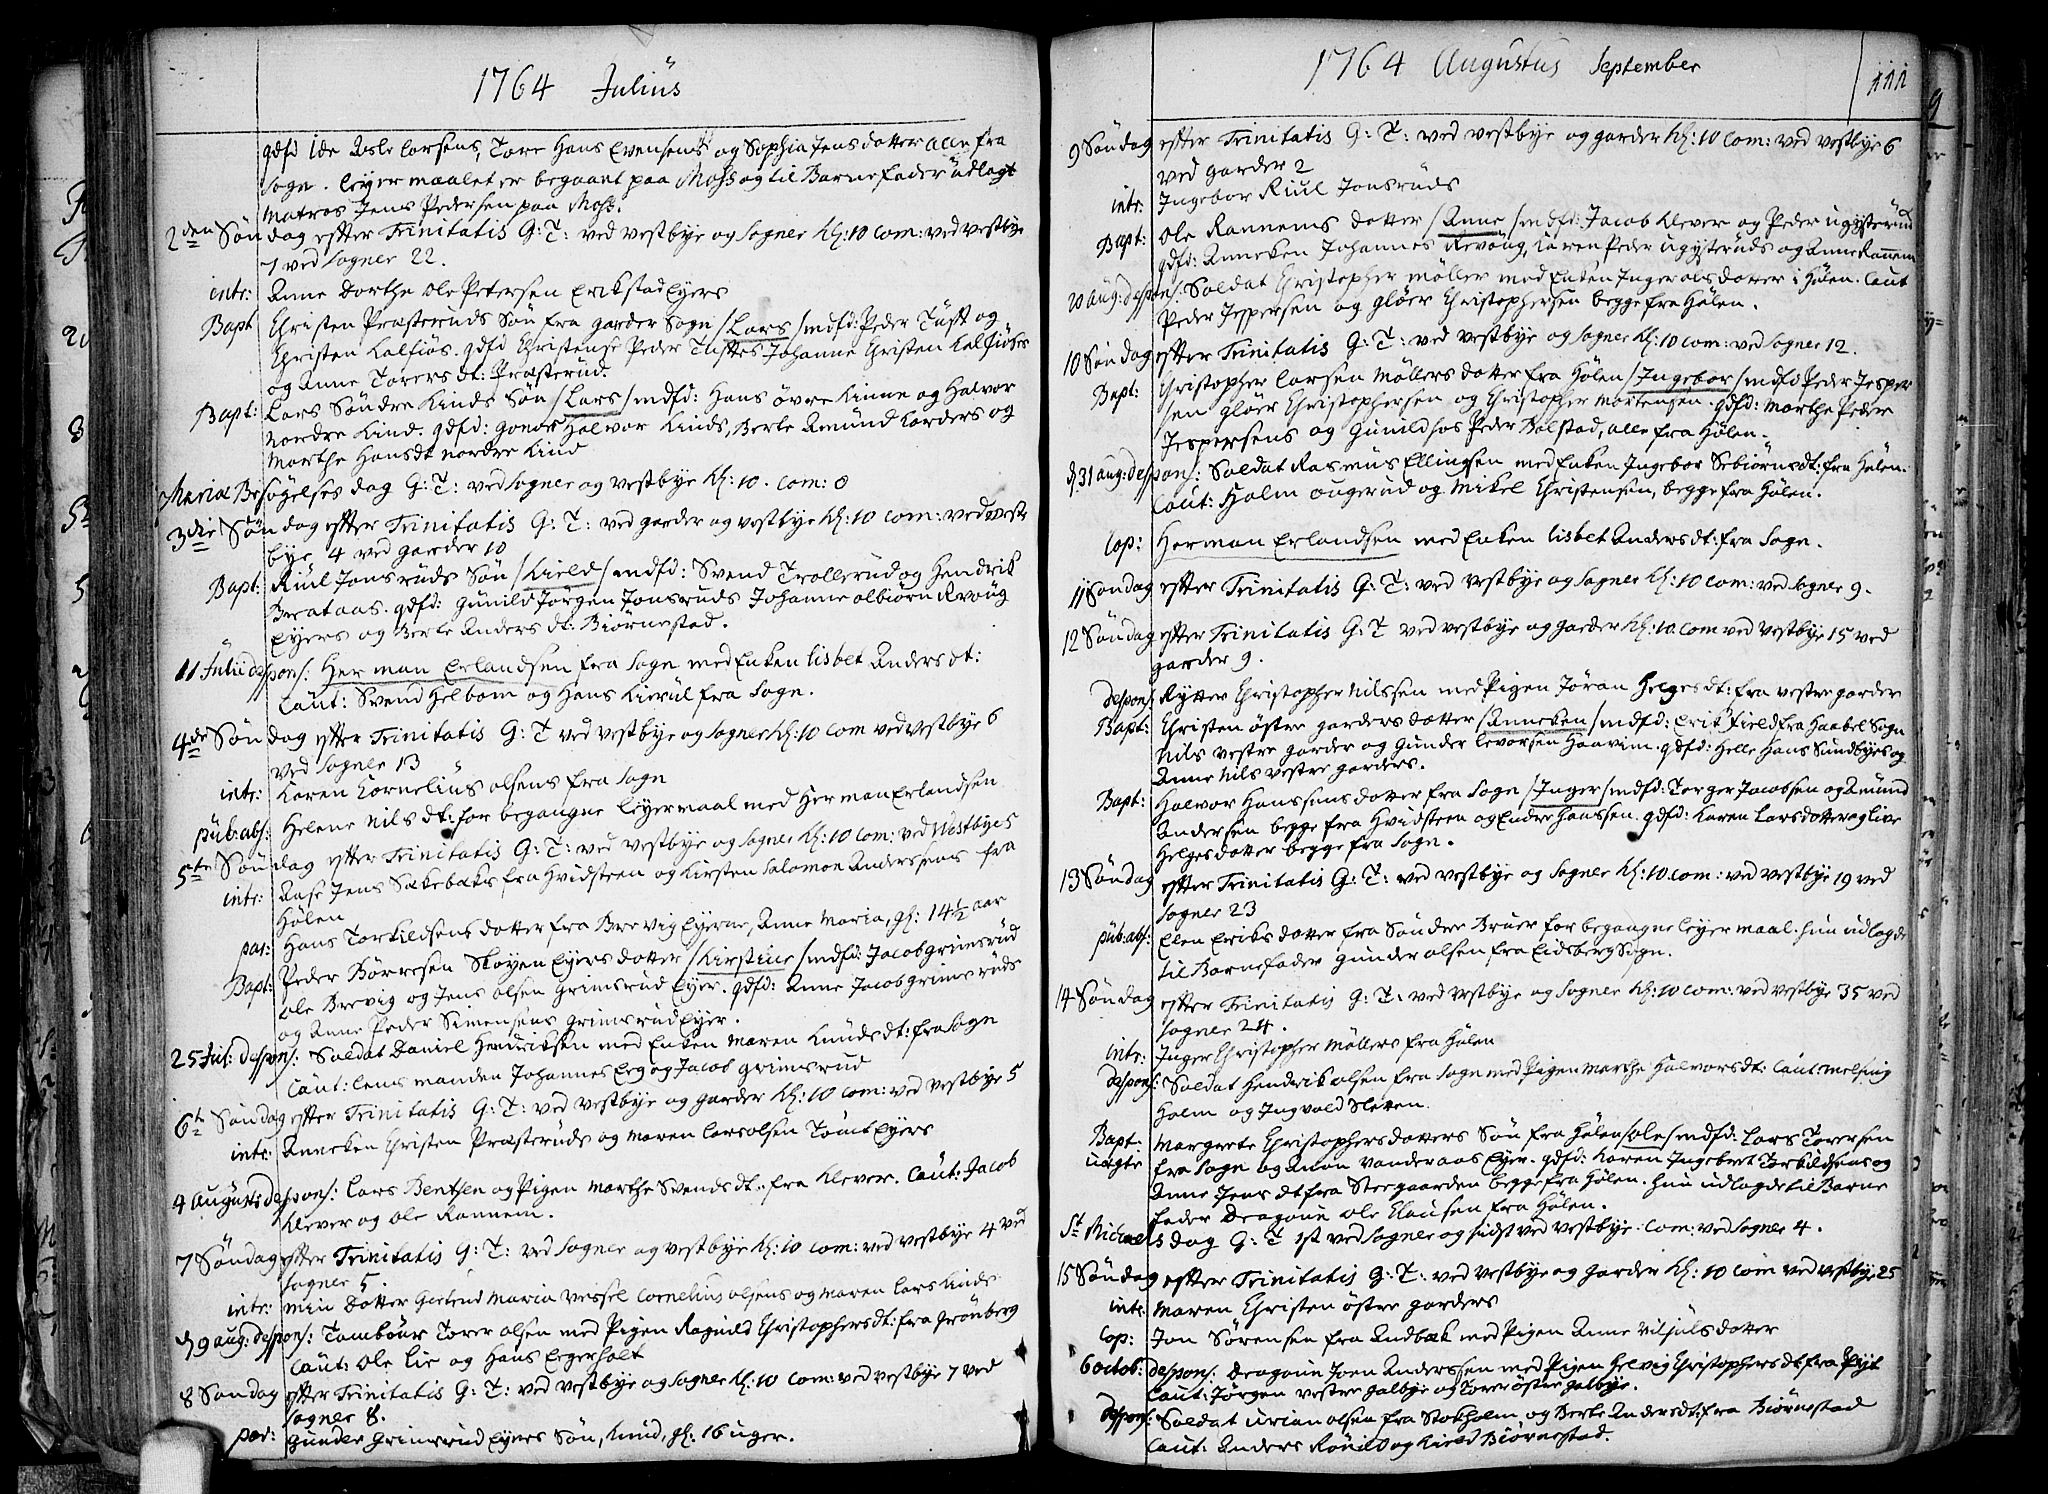 1764 Julius
gdfd Ide Asle Larsens, Tore Hans Evensens og Sophia Jensdatter alle fra
Sogn. Leyermaalet er begaaet paa Moss og til Barnefader udlagt
Matros Jens Pedersen paa Moss.
2den Søndag efter Trinitatis G: T: ved vestbye og Sogner Kl: 10 Com: ved vestbye
7 ved Sogner 22.
intr: Anne Dorthe Ole Petersen Erikstad Eyers
Bapt Christen Præsteruds Søn fra garder Sogn /Lars/ mdfd: Peder Tuft og
Christen Kalfiøs. gdfd Christense Peder Tuftes Johanne Christen Kalfiøses
og Anne Torersdt: Præsterud.
Bapt: Lars Søndre Kinds Søn /Lars/ mdfd: Hans øvre Kinne og Halvor
nordre Kind. gdfd: Halvor Kinds, Berte Amund Garders og
Marthe Hansdt nordre Kind
Mariæ Besøgelses dag G: T: ved Sogner og vestbye Kl: 10. Com: 0
3die Søndag efter Trinitatis G: T: ved garder og vestbye Kl: 10 Com: ved vest-
bye 4 ved garder 10
Bapt: Riul Jonsruds Søn /Kield/ mdfd: Svend Trollerud og Hendrik
Brataas. gdfd: Gunild Jørgen Jonsruds Johanne Olbiørn Revoug
Eyers og Berte Anders dt: Biørnestad.
11 Julii despons: Herman Erlandsen fra Sogn med Enken Lisbet Andersdt:
Caut: Svend Helbom og Hans Kierul fra Sogn.
4de Søndag efter Trinitatis G: T ved vestbye og Sogner Kl: 10 Com ved vestbye 6
ved Sogner 13
intr: Karen Cornelius Olsens fra Sogn
pub: abs: Helene Nilsdt: for begangne Leyermaal med Herman Erlandsen
5te Søndag efter Trinitatis G: T: ved vestbye og Sogner Kl: 10 Com: ved Westbye 5
intr: Aase Jens Sækebæks fra Hvidsteen og Kirsten Salomon Anderssens fra
Hølen
pas: Hans Torkildsens datter fra Brevig Eyerne, Anne Maria, gl: 14½ aar
Bapt: Peder Børresen Skoyen Eyers datter /Kirstine/ mdfd: Jacob grimsrud
Ole Brevig og Jens Olsen Grimsrud Eyer. gdfd: Anne Jacob grimsruds
og Anne Peder Simensens grimsrud Eyer.
25 Jul: despons: Soldat Daniel Hendriksen med Enken Maren Knudsdt: fra Sogn
Caut: Lensmanden Johannes Eeg og Jacob grimsrud
6te Søndag efter Trinitatis G: T: ved vestbye og garder Kl: 10 Com: ved vestbye 5
intr: Anneken Christen Præsteruds og Maren Lars Olsen Tomt Eyers
4 Augusts despons: Lars Bentsen og Pigen Marthe Svendsdt: fra Klever. Caut: Jacob
Klever og Ole Rannem.
7 Søndag efter Trinitatis G: T: ved Sogner og vestbye Kl: 10 Com: ved vestbye 4 ved
Sogner 5.
intr: min Datter Giertrud Maria Wessel Cornelius Olsens og Maren Lars Kinds
d 9 aug: despons: Tambour Torer Olsen med Pigen Ragnild Christophersdt: fra Grønberg
Caut: Ole Lie og Hans Egerholt
8 Søndag efter Trinitatis G: T: ved vestbye og Sogner Kl: 10 Com: ved vestbye 7 ved
Sogner 8.
pas: Gunder Grimsrud Eyers Søn, Knud, gl: 16 uger.
1764 Augustus September 111
9 Søndag efter Trinitatis G: T: ved vestbye og garder Kl: 10 Com: ved vestbye 6
ved garder 2
intr: Ingebor Riul Jonsruds
Bapt: Ole Rannems datter /Anne/ mdfd: Jacob Klever og Peder Ugysterud
gdfd: Anneken Johannes Revoug, Karen Peder Ugysteruds og Anne Rannem
20 aug: despons: Soldat Christopher Møller med Enken Inger Olsdatter i Hølen. Caut
Peder Jespersen og Gløer Christophersen begge fra Hølen.
10 Søndag efter Trinitatis G: T: ved vestbye og Sogner Kl: 10 Com: ved Sogner 12.
Bapt: Christopher Larsen Møllers datter fra Hølen /Ingebor/ mdfd Peder Jesper
sen Gløer Christophersen og Christopher Mortensen. gdfd: Marthe Peder
Jespersens og Gunild hos Peder Bolstad, alle fra Hølen.
d 31 aug: despons: Soldat Rasmus Ellingsen med Enken Ingebor Sebiørnsdt: fra Hølen.
Caut: Holm Ougerud og Mikel Christensen, begge fra Hølen.
Cop: Herman Erlandsen med Enken Lisbet Andersdt: fra Sogn.
11 Søndag efter Trinitatis G: T: ved vestbye og Sogner Kl: 10 Com: ved Sogner 9.
12 Søndag efter Trinitatis G: T ved vestbye og garder Kl: 10. Com ved vestbye 15 ved
garder 9.
despons: Rytter Christopher Nilssen med Pigen Jøran Helgesdt: fra vestre garder
Bapt: Christen østre garders datter /Anneken/ mdfd: Erik Field fra Haabel Sogn
Nils vestre garder og Gunder Levorsen Haavim. gdfd: Helle Hans Sundbyes og
Anne Nils vestre garders.
Bapt: Halvor Hanssens datter fra Sogn /Inger/ mdfd: Torger Jacobsen og Amund
Andersen begge fra Hvidsteen og Ender Hanssen. gdfd: Karen Larsdatter og Live
Helgesdatter begge fra Sogn.
13 Søndag efter Trinitatis G: T: ved vestbye og Sogner Kl: 10. Com: ved vestbye 19 ved
Sogner 23
pub: abs: Elen Eriksdatter fra Sønder Bruer for begangne Leyermaal. hun udlagde
til Barnefader Gunder Olsen fra Eidsberg Sogn.
14 Søndag efter Trinitatis G: T: ved vestbye og Sogner Kl: 10 Com: ved vestbye 35 ved
Sogner 24.
intr: Inger Christopher Møllers fra Hølen
despons: Soldat Hendrik Olsen fra Sogn med Pigen Marthe Halvorsdt: Caut
Holm og Ingvald Sletten.
Bapt: uægte Margrete Christophersdatters Søn fra Hølen /Ole/ mdfd: Lars Torersen
fra Sogn og Amon Vanderaas Eyer. gdfd: Karen Ingebret Torkildsens og
Anne Jensdt fra Steegaarden begge fra Hølen. hun udlagde til Barne
fader Dragoun Ole Clausen fra Hølen.
St Michaels dag G: T 1st ved Sogner og sidst ved vestbye: Com: ved Sogner 4.
15 Søndag efter Trinitatis G: T: ved vestbye og Garder Kl: 10 Com ved vestbye 25
intr: Maren Christen østre garders
Cop: Jon Sørensen fra Randbæk med Pigen Anne Viljulsdatter
6 octob: despons: Dragoun Joen Anderssen med Pigen Helvig Christophersdt fra Pijt
Caut: Jørgen vestre Galbye og Torer østre Galbye.
despons: Soldat Urian Olsen fra Stokholm og Berte Andersdt: fra Biørnestad
Caut: Anders Rønild og Kield Biørnestad.